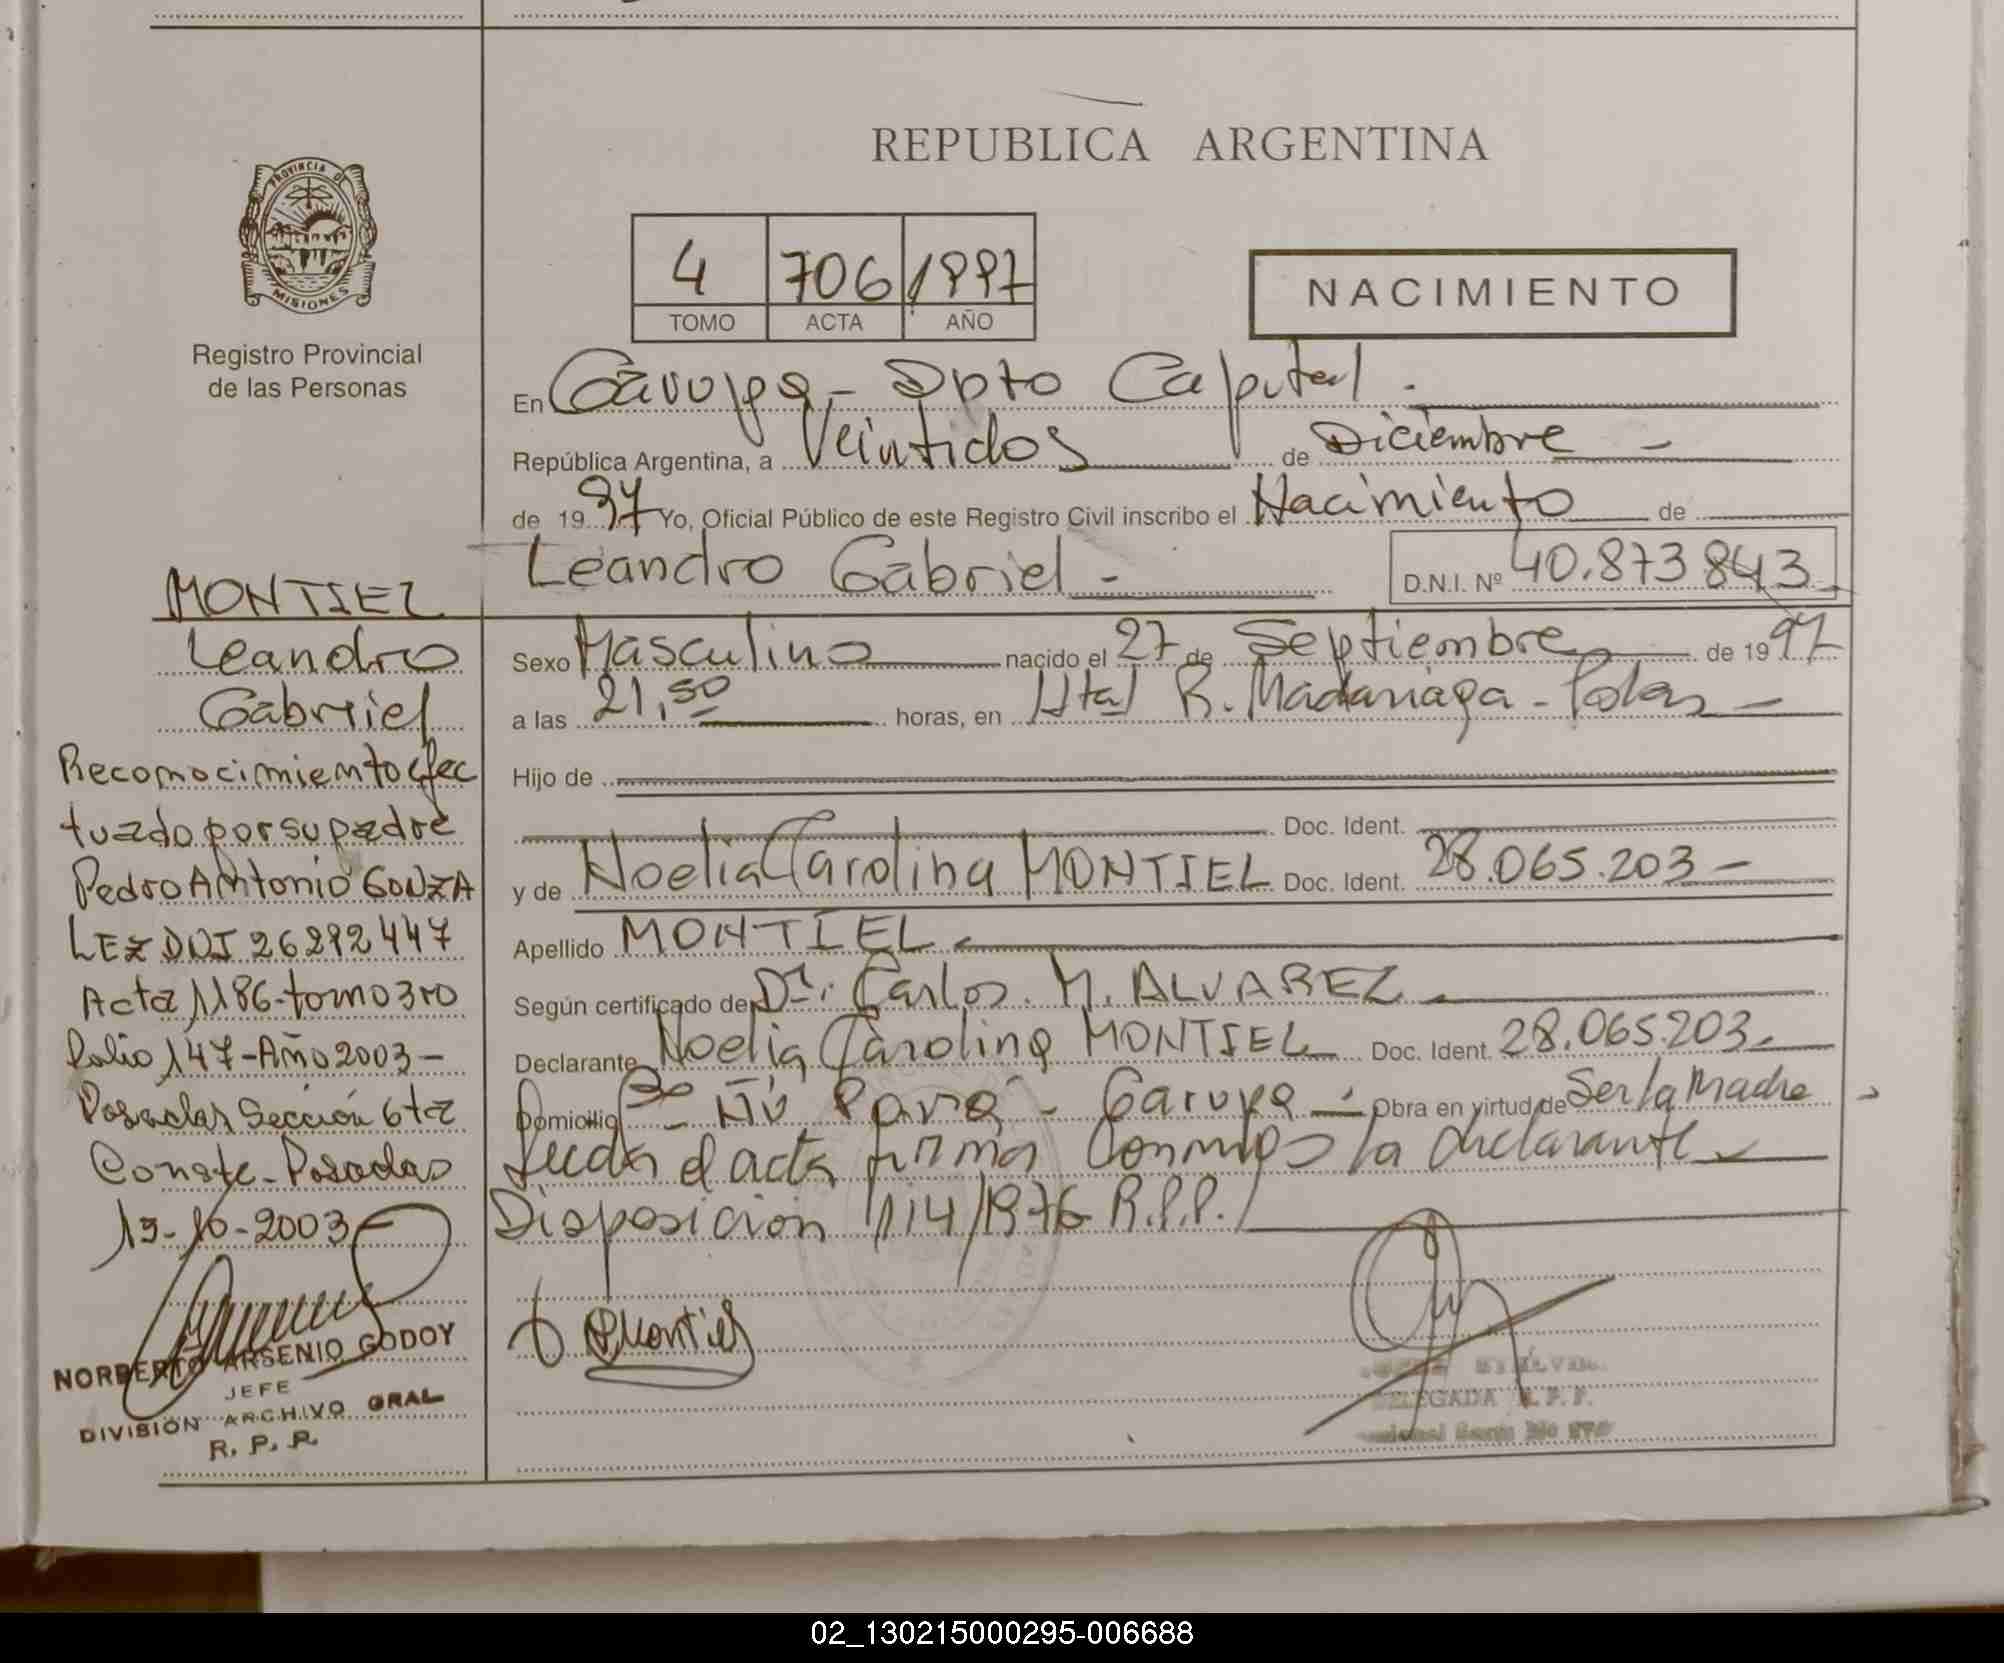 PROVINCIA DE
MISIONES
Registro Provincial
de las Personas
MONTIEL
Leandro
Gabriel
Reconocimiento efec
tuado por su padre
Pedro Antonio GONZA
LEZ DNI 26292447
Acta 1186-tomo 3ro
Folio 147-Año 2003-
Posadas Sección 6ta
Conste-Posadas
13-10-2003
NORBERTO ARSENIO GODOY
JEFE
DIVISIÓN ARCHIVO GRAL
R. P. P.
REPUBLICA ARGENTINA
4 706 1997
TOMO ACTA AÑO
NACIMIENTO
En Garupa - Dpto Capital.
República Argentina, a Veintidos de Diciembre -
de 1997 Yo, Oficial Público de este Registro Civil inscribo el Nacimiento de
Leandro Gabriel - D.N.I. Nº 40.873.843
Sexo Masculino nacido el 27 de Septiembre de 1997
a las 21,50 horas, en Htal R. Madariaga - Pdas -
Hijo de
Doc. Ident.
y de Noelia Carolina MONTIEL Doc. Ident. 28.065.203 -
Apellido MONTIEL
Según certificado de Dr. Carlos M. ALVAREZ
Declarante Noelia Carolina MONTIEL Doc. Ident. 28.065.203
Domicilio Bº Ñu Porá - Garupa - Obra en virtud de Ser la Madre
Leida el acta firma conmigo la declarante
Disposición 114/1976 R.P.P.
Montiel
DELEGADA R.P.P.
02_130215000295-006688